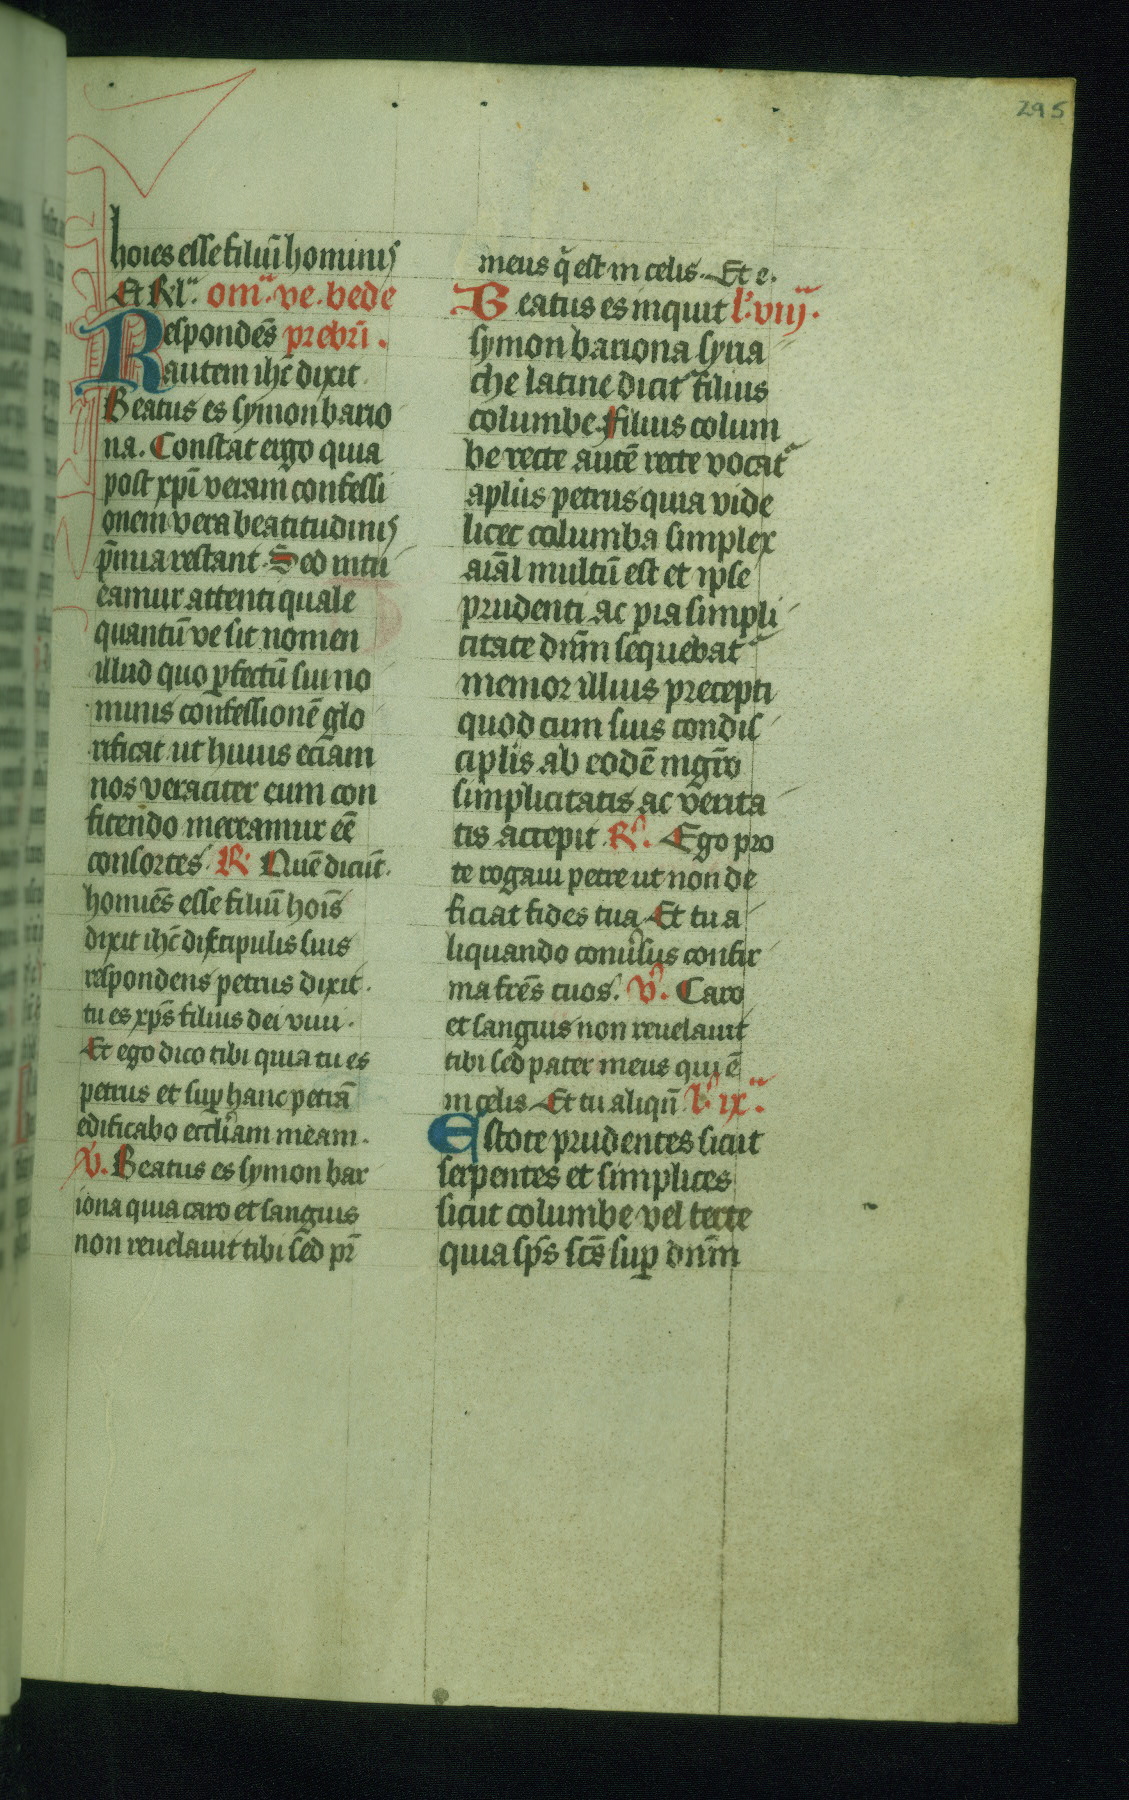 295
hoies esse filiū hominis
Et Rl'. om. ve. bede
Respondēs prebri.
autem ihc̄ dixit
Beatus es symon bario
na. Constat ergo quia
post xp̄i veram confessi
onem vera beatitudinis
p̄mia restant. Sed intu
eamur attenti quale
quantū ve sit nomen
illud quo p̱fectū sui no
minis confessionē glo
rificat ut huius eciam
nos veraciter eum con
fitendo mereamur eē
consortes. R. Quē dicūt
homiēs esse filiū hoīs
dixit ihc̄ discipulis suis
respondens petrus dixit.
tu es xp̄s filius dei viui.
Et ego dico tibi quia tu es
petrus et sup̱ hanc petrā
edificabo eccliam meam.
V. Beatus es symon bar
iona quia caro et sanguis
non reuelauit tibi sed pr̄
meus q̄ est in celis. Et e.
Beatus es inquit l. viij.
symon bariona syria
che latine dicit᷑ filius
columbe. Filius colum
be recte autē recte vocat᷑
aplūs petrus quia vide
licet columba simplex
aīal multū est et ipse
prudenti ac pia simpli
citate dn̄m sequebat᷑
memor illius precepti
quod cum suis condis
ciplis ab eodē mgr̄o
simplicitatis ac verita
tis accepit. R. Ego pro
te rogaui petre ut non de
ficiat fides tua. Et tu a
liquando conu'sus confir
ma frēs tuos. V. Caro
et sanguis non reuelauit
tibi sed pater meus qui ē
in celis. Et tu aliqn̄ l. ix.
Estote prudentes sicut
serpentes et simplices
sicut columbe vel recte
quia sp̄s sc̄s sup̱ dn̄m